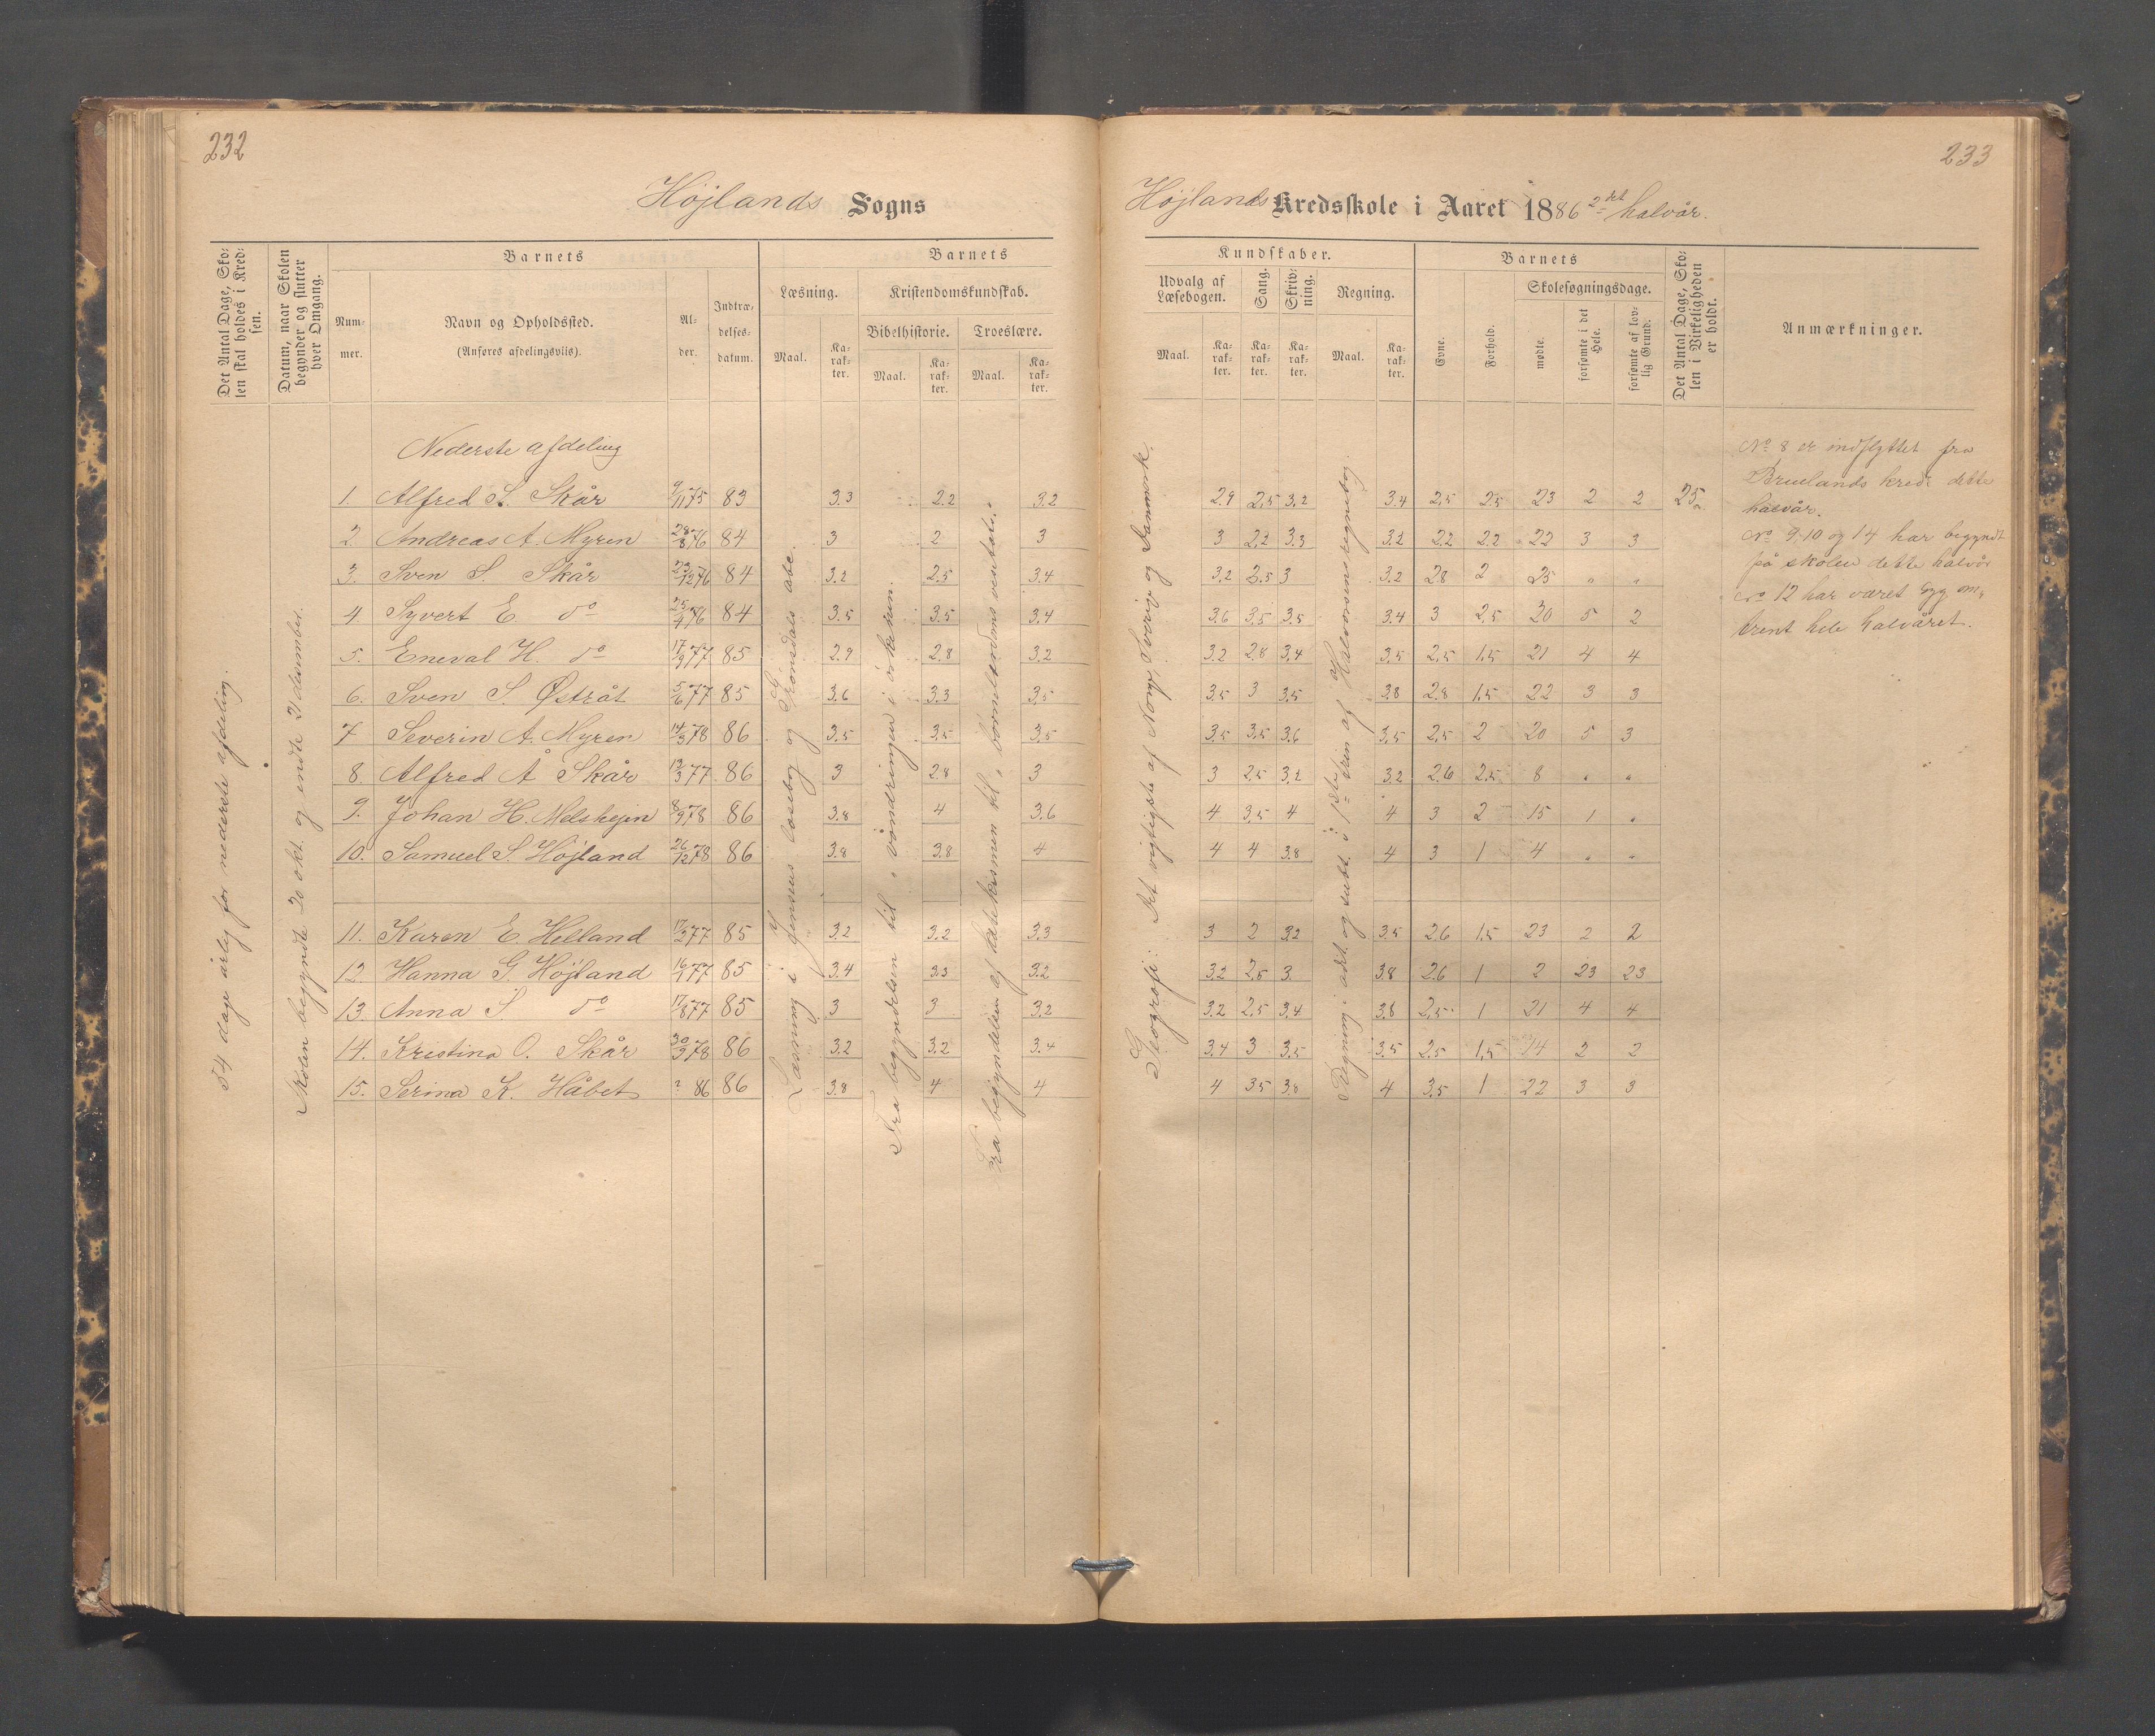 232
Højlands Sogns
Det Antal Dage, Sko-
len skal holdes i Kred-
sen.
Datum, naar Skolen
begynder og slutter
hver Omgang.
Barnets
Num-
mer.
Navn og Opholdssted.
(Anføres afdelingsviis).
Al-
der.
Indtræ-
delses-
datum.
Barnets
Læsning.
Kristendomskundskab.
Bibelhistorie.
Troeslære.
Maal.
Ka-
rak-
ter.
Maal.
Ka-
rak-
ter.
Maal.
Ka-
rak-
ter.
54 dage årlig for nederste afdeling.
Skolen begyndte 20 okt. og endte 21 december.
Læsning i Jensens læsebog og Grønsdals abc.
Fra begyndelsen til " vandringen i ørkenen.
Fra begyndelsen af katekismen til " børnelærdoms
Nederste afdeling
1. Alfred S. Skår 9/11 75 83 3.3 2.2 3.2
2. Andreas A. Myren 28/8 76 84 3 2 3
3. Sven S. Skår 23/12 76 84 3.2 2.5 3.4
4 Syvert E. do 25/4 76 84 3.5 3.5 3.4
5. Eneval H. do 17/9 77 85 2.9 2.8 3.2
6. Sven S. Østråt 5/6 77 85 3.6 3.3 3.5
7 Severin A. Myren 14/3 78 86 3.5 3.5 3.5
8. Alfred Å Skår 12/3 77 86 3 2.8 3
9. Johan H. Melshejen 8/9 78 86 3.8 4 3.6
10. Samuel S. Højland 26/12 78 86 3.8 3.8 4
11. Karen E. Helland 17/2 77 85 3.2 3.2 3.3
12. Hanna G. Højland 16/1 77 85 3.4 3.3 3.2
13. Anna S. do 17/8 77 85 3 3 3.2
14. Kristina O. Skår 30/3 78 86 3.2 3.2 3.4
15. Serina K. Håbet ? 86 86 3.8 4 4
233
Højlands Kredsskole i Aaret 1886 2det halvår.
Kundskaber.
Udvalg af
Læsebogen.
Sang.
Skriv-
ning.
Regning.
Maal.
Ka-
rak-
ter.
Ka-
rak-
ter.
Ka-
rak-
ter.
Maal.
Ka-
rak-
ter.
Barnets
Evne.
Forhold.
Skolesøgningsdage.
mødte.
forsømte i det
Hele.
forsømte af lov-
lig Grund.
Det Antal Dage, Sko-
len i Virkeligheden
er holdt.
Anmærkninger.
Geografi: Det vigtigste af Norge, Sverrig og Danmark.
Regning i add. og subt. i 1ste trin af Halvorsens regnebog.
2.9 2.5 3.2 3.4 2.5 2.5 23 2 2 25
3 2.2 3.3 3.2 2.2 2.2 22 3 3
3.2 2.5 3 3.2 2.8 2 25 " "
3.6 3.5 3.5 3.4 3 2.5 20 5 2
3.2 2.8 3.4 3.5 2.5 1.5 21 4 4
3.5 3 3.5 3.8 2.8 1.5 22 3 3
3.5 3.5 3.6 3.5 2.5 2 20 5 3
3 2.5 3.2 3.2 2.6 2.5 8 " "
4 3.5 4 4 3 2 15 1 "
4 4 3.8 4 3 1 4 " "
3 2 3.2 3.5 2.6 1.5 23 2 2
3.2 2.5 3. 3.8 2.6 1 2 23 23
3.2 2.5 3.4 3.8 2.5 1 21 4 4
3.4 3 3.5 3.5 2.5 1.5 14 2 2
4 3.5 3.8 4 3.5 1 22 3 3
No 8 er indflyttet fra
Bruelands kreds dette
halvår.
No 9, 10 og 14 har begyndt
på skolen dette halvår
No 12 har været syg om-
trent hele halvåret.